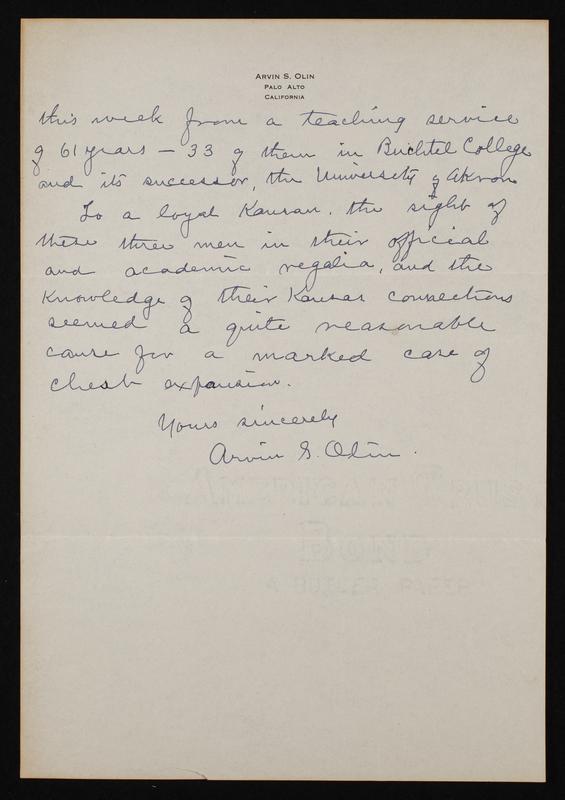 ARVIN S. OLIN
PALO ALTO
CALIFORNIA
this week from a teaching service
of 61 years — 33 of them in Buchtel College
and its successor, the University of Akron
To a loyal Kansan, the sight of
these three men in their official
and academic regalia, and the
knowledge of their Kansas connections
seemed a quite reasonable
cause for a marked case of
chest expansion.
Yours sincerely
Arvin S. Olin.